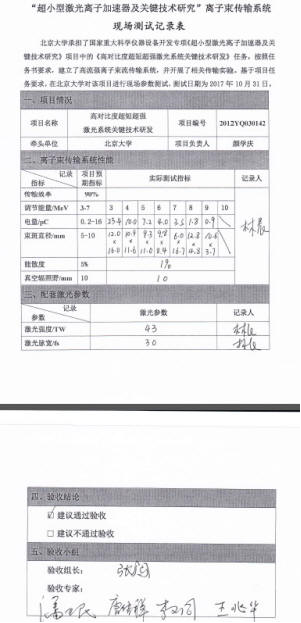 “超小型激光离子加速器及关键技术研究”离子束传输系统
现场测试记录表
北京大学承担了国家重大科学仪器设备开发专项《超小型激光离子加速器及关
键技术研究》项目中的《高对比度超短超强激光系统关键技术研发》任务，按照任
务书要求，建立了高流强离子束流传输系统，并开展了相关传输实验。基于项目任
务要求，在北京大学对该项目进行现场参数测试。测试日期为 2017 年 10 月 31 日。
一、项目情况
项目名称 高对比度超短超强激光系统关键技术研发 项目编号 2012YQ030142
牵头单位 北京大学 项目负责人 颜学庆
二、离子束传输系统性能
记录 指标 项目预期指标 实际测试指标 记录人
传输效率 90%
调节能量/MeV 3-7 3 4 5 6 7 8 9 10
电量/pC 0.2-16 25.4 10.0 7.2 4.0 3.5 1.8 0.9
束斑直径/mm 5-10 12.0 10.9 9.3 9.8 6.0 12.8 10.6
× × × × × × ×
16.0 11.6 11.0 8.4 16.7 4.8 3.7
能散度 5% 1%
真空辐照野/mm 10 10
三、配套激光参数
记录 参数 激光参数 记录人
激光强度/TW 43
激光脉宽/fs 30
四、验收结论
☑ 建议通过验收
□ 建议不通过验收
五、验收小组
验收组长：
验收专家：